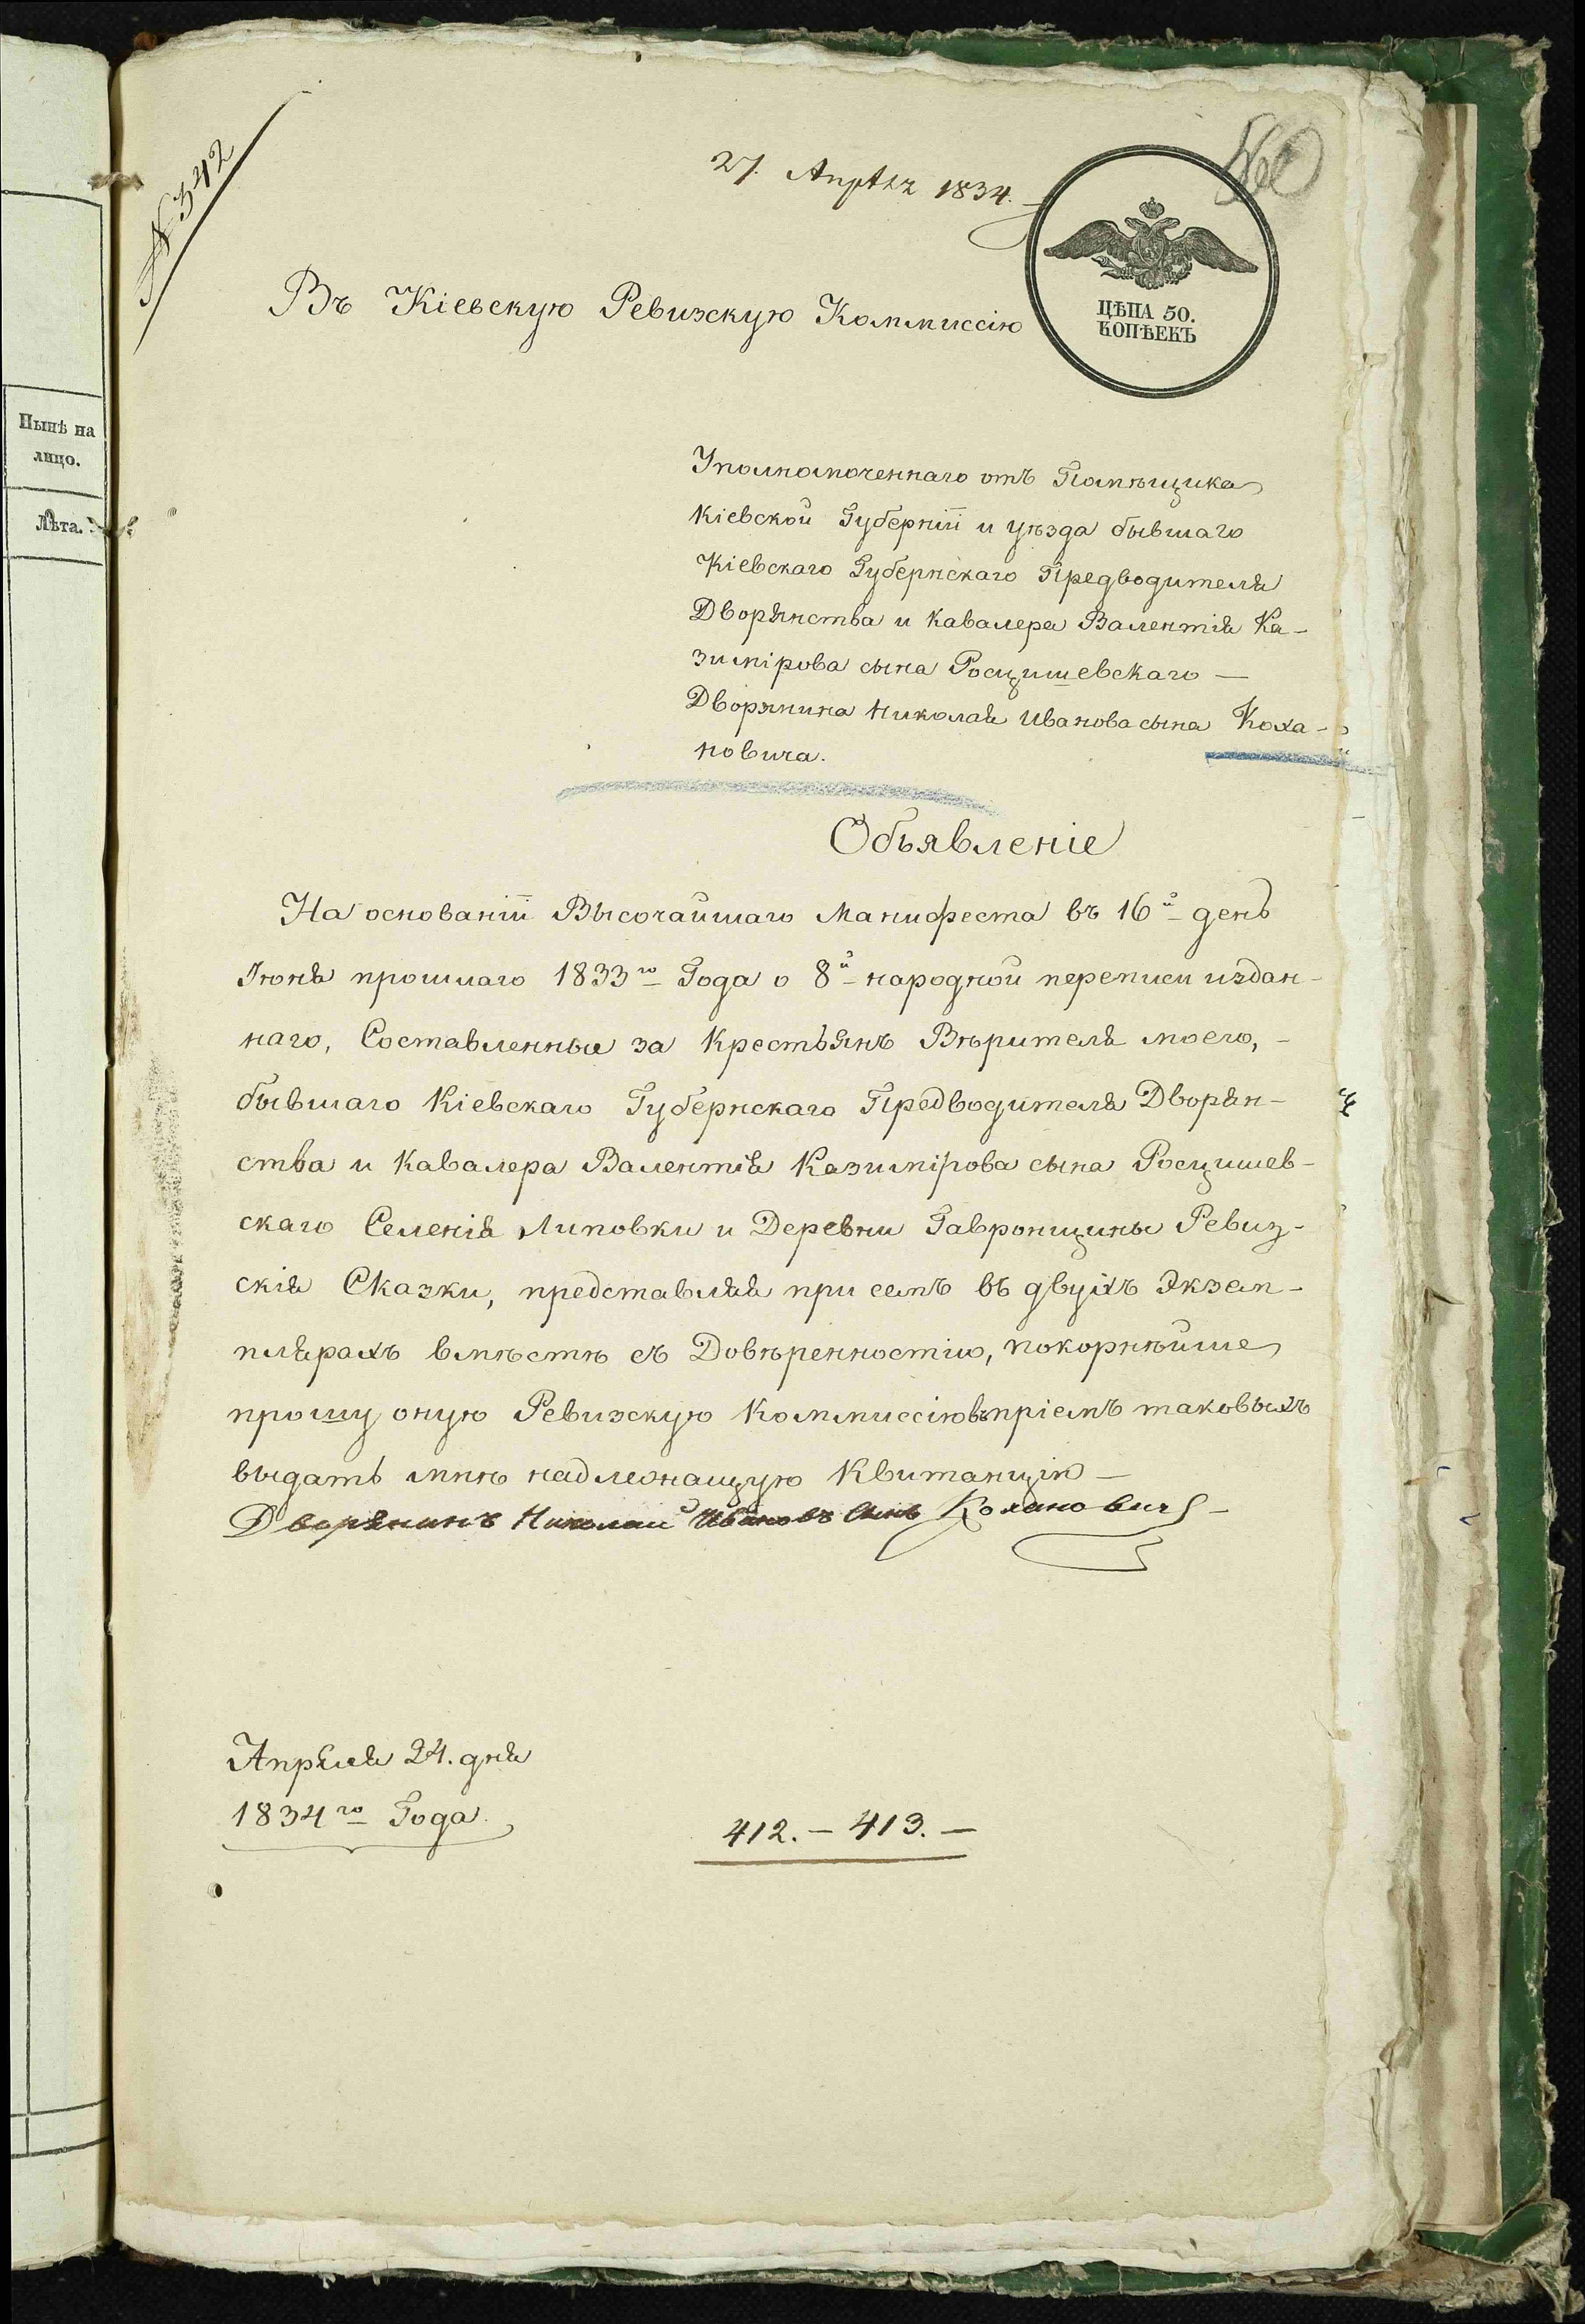 № 542
27. Апрѣля 1834.
ЦѢНА 50.
КОПѢЕКЪ
Въ Кіевскую Ревизскую Коммиссію
Нынѣ на
лицо.
Лѣта.
Уполномоченнаго отъ Помѣщика
Кіевской Губерніи и уѣзда бывшаго
Кіевскаго Губернскаго Предводителя
Дворянства и Кавалера Валентія Ка-
зимірова сына Росцишевскаго —
Дворянина Николая Иванова сына Коха-
новича.
Объявленіе
На основаніи Высочайшаго Манифеста въ 16й день
Іюня прошлаго 1833го Года о 8й народной переписи издан-
наго, Составленные за Крестьянъ Вѣрителя моего, -
бывшаго Кіевскаго Губернскаго Предводителя Дворян-
ства и Кавалера Валентія Казимірова сына Росцишев-
скаго Селенія Липовки и Деревни Гавронщины Ревиз-
скія Сказки, представляя при семъ въ двухъ Экзем-
плярахъ вмѣстѣ съ Довѣренностію, покорнѣйше
прошу оную Ревизскую Коммиссію въ пріемѣ таковыхъ
выдать мнѣ надлежащую Квитанцію —
Дворянинъ Николай Ивановъ Сынъ Коханович -
Апрѣля 24. дня
1834го Года.
412. — 413. —